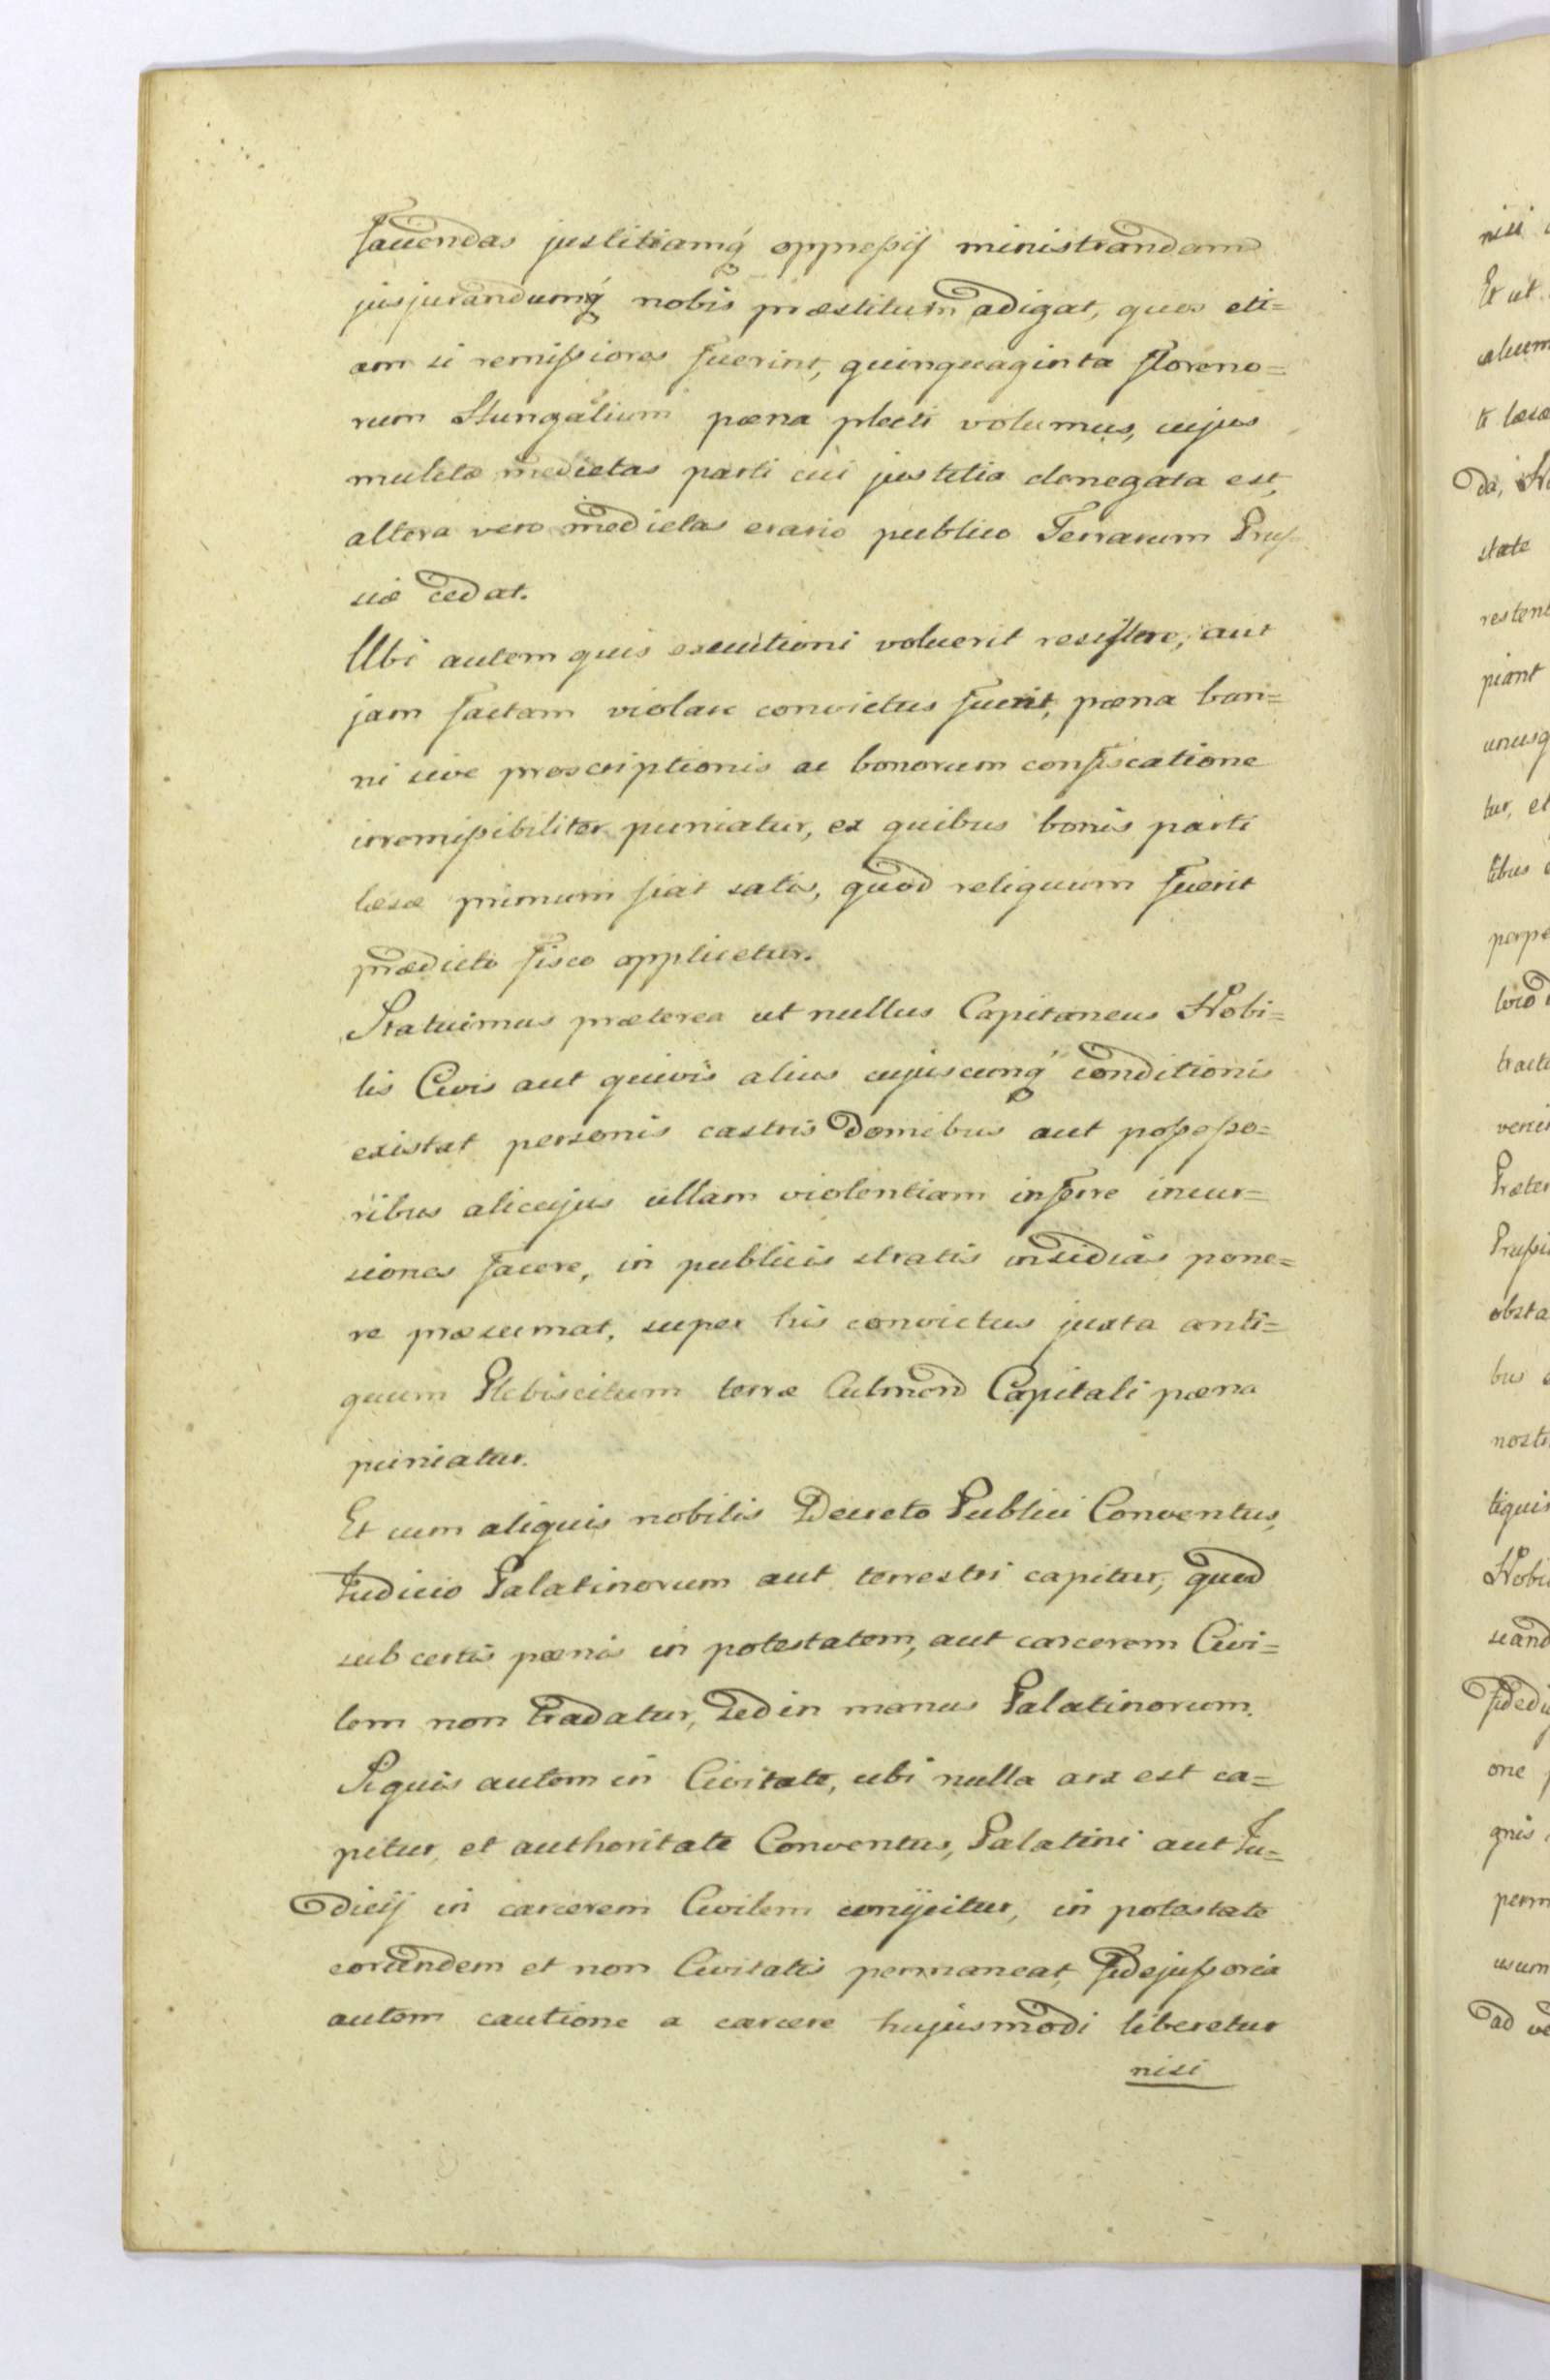 favendas justitiamq́ oppreßij ministrandam
jusjurandumq́ nobis præstitum adigat, quos eti=
am si remißiores fuerint, quinquaginta floreno=
rum Hungalium pœna plecti volumus, cujus
muletæ medietas parti cui justitia denegata est,
altera vero medietas erario publico Terrarum Pruſ
siæ cedat.
Ubi autem quis executioni voluerit resistere, aut
jam factam violare convictus fuerit, pœna ban=
ni sive proscriptionis ac bonorum confiscatione
irremißibiliter puniatur, ex quibus bonis parti
læsæ primum fiat satis, quod reliquum fuerit
prædicto fisco applicetur.
Statuimus præterea ut nullus Capitaneus Nobi=
lis Civis aut quivis alius cujuscunq́ conditionis
existat personis castris domibus aut poßeßo=
ribus alicujus ullam violentiam inferre incur=
siones facere, in publicis stratis insidias pone=
re præsumat, super his convictus juxta anti=
quum Plebiscitum terræ Culmend Capitali pœna
puniatur.
Et cum aliquis nobilis Decreto Publici Conventus,
Judicio Palatinorum aut terrestri capitur, quod
sub certis pœnis in potestatem, aut carcerem Civi=
lem non tradatur, sed in manus Palatinorum.
Siquis autem in Civitate, ubi nulla arx est ca=
pitur, et authoritate Conventus, Palatini aut Ju=
dicij in carcerem Civilem conijcitur, in potestate
eorundem et non Civitatis permaneat, fidejußoria
autem cautione a carcere hujusmodi liberetur
nisi
nisi
Et ut
alium
læsæ
da,
state
restent
piant
unusq
tur, et
tibus
perpe
tracte
Præter
Prußi
obsta
bus
nost
tiquis
Nobi
one
gnis
perm
usum
ad ve